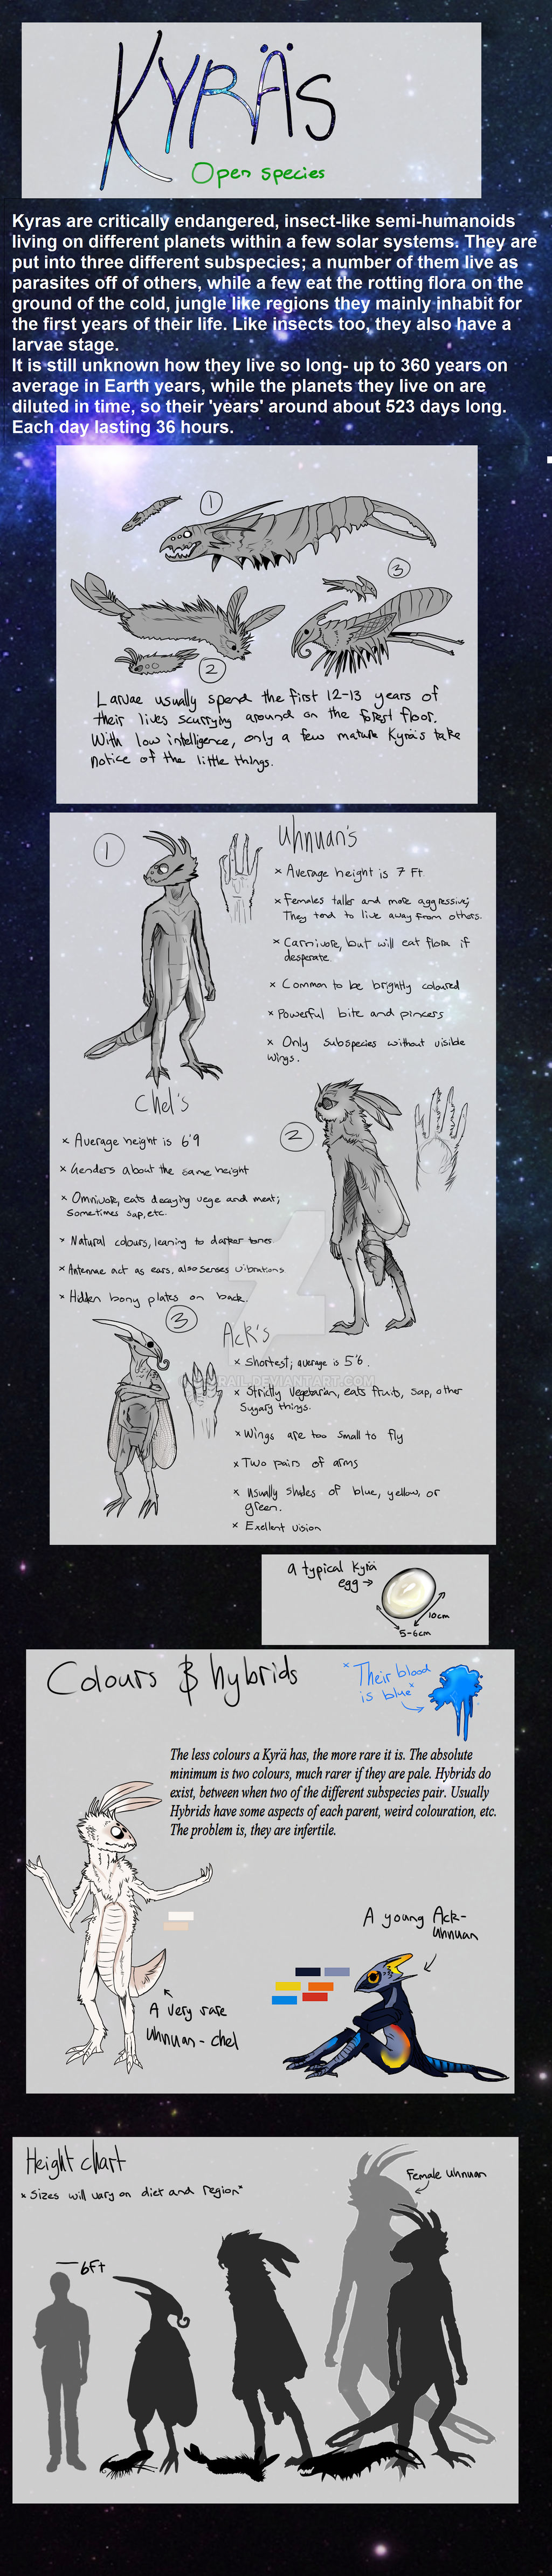 KYRÄS
Open species
Kyras are critically endangered, insect-like semi-humanoids
living on different planets within a few solar systems. They are
put into three different subspecies; a number of them live as
parasites off of others, while a few eat the rotting flora on the
ground of the cold, jungle like regions they mainly inhabit for
the first years of their life. Like insects too, they also have a
larvae stage.
It is still unknown how they live so long- up to 360 years on
average in Earth years, while the planets they live on are
diluted in time, so their 'years' around about 523 days long.
Each day lasting 36 hours.
1
3
2
Larvae usually spend the first 12-13 years of
their lives scurrying around on the forest floor.
With low intelligence, only a few mature Kyrä's take
notice of the little things.
1
Uhnuan's
x Average height is 7 Ft
x Females taller and more aggressive;
They tend to live away from others.
x Carnivore, but will eat flora if
desperate.
x Common to be brightly coloured
x Powerful bite and pincers
x Only subspecies without visible
wings.
Chel's
2
x Average height is 6'9
x Genders about the same height
x Omnivore, eats decaying vege and meat;
Sometimes sap, etc.
x Natural colours, leaning to darker tones
x Antennae act as ears, also senses vibrations
x Hidden bony plates on back.
3
Ack's
x Shortest; average is 5'6.
.DEVIANTART.COM
x Strictly Vegetarian, eats fruits, sap, other
Sugary things.
x Wings are too small to fly
x Two pairs of arms
x Usually shades of blue, yellow, or
green.
x Exellent vision
a typical Kyrä
egg →
10cm
5-6cm
Colours & hybrids
x Their blood
is blue x
The less colours a Kyrä has, the more rare it is. The absolute
minimum is two colours, much rarer if they are pale. Hybrids do
exist, between when two of the different subspecies pair. Usually
Hybrids have some aspects of each parent, weird colouration, etc.
The problem is, they are infertile.
A young Ack-
Uhnuan
A very rare
Uhnuan - chel
Height chart
x Sizes will vary on diet and region x
Female Uhnuan
6Ft